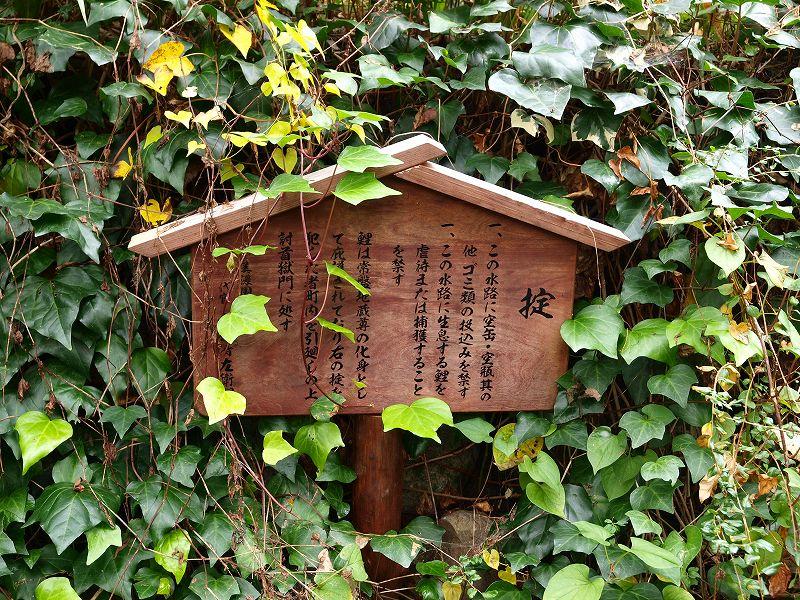 掟
一、この水路に空缶、空瓶其の
他ゴミ類の投込みを禁す
一、この水路に生息する鯉を
虐待または捕獲すること
を禁す
鯉は常
地蔵尊の化身とし
て
されており右の掟を
犯
た者町内を引廻しの上
討首獄門に処す
左衛